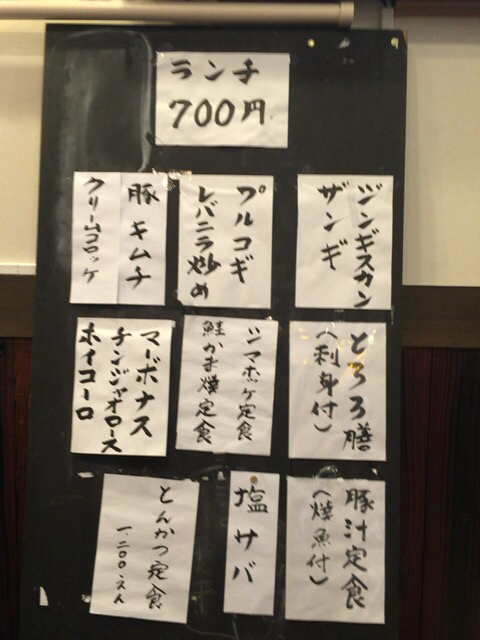 ランチ
700円
ジンギスカン
ザンギ
プルコギ
レバニラ炒め
豚キムチ
クリームコロッケ
とろろ膳
(刺身付)
シマホッケ定食
鮭かま焼定食
マーボナス
チンジャオロース
ホイコーロ
豚汁定食
(焼魚付)
塩サバ
とんかつ定食
一、二〇〇えん